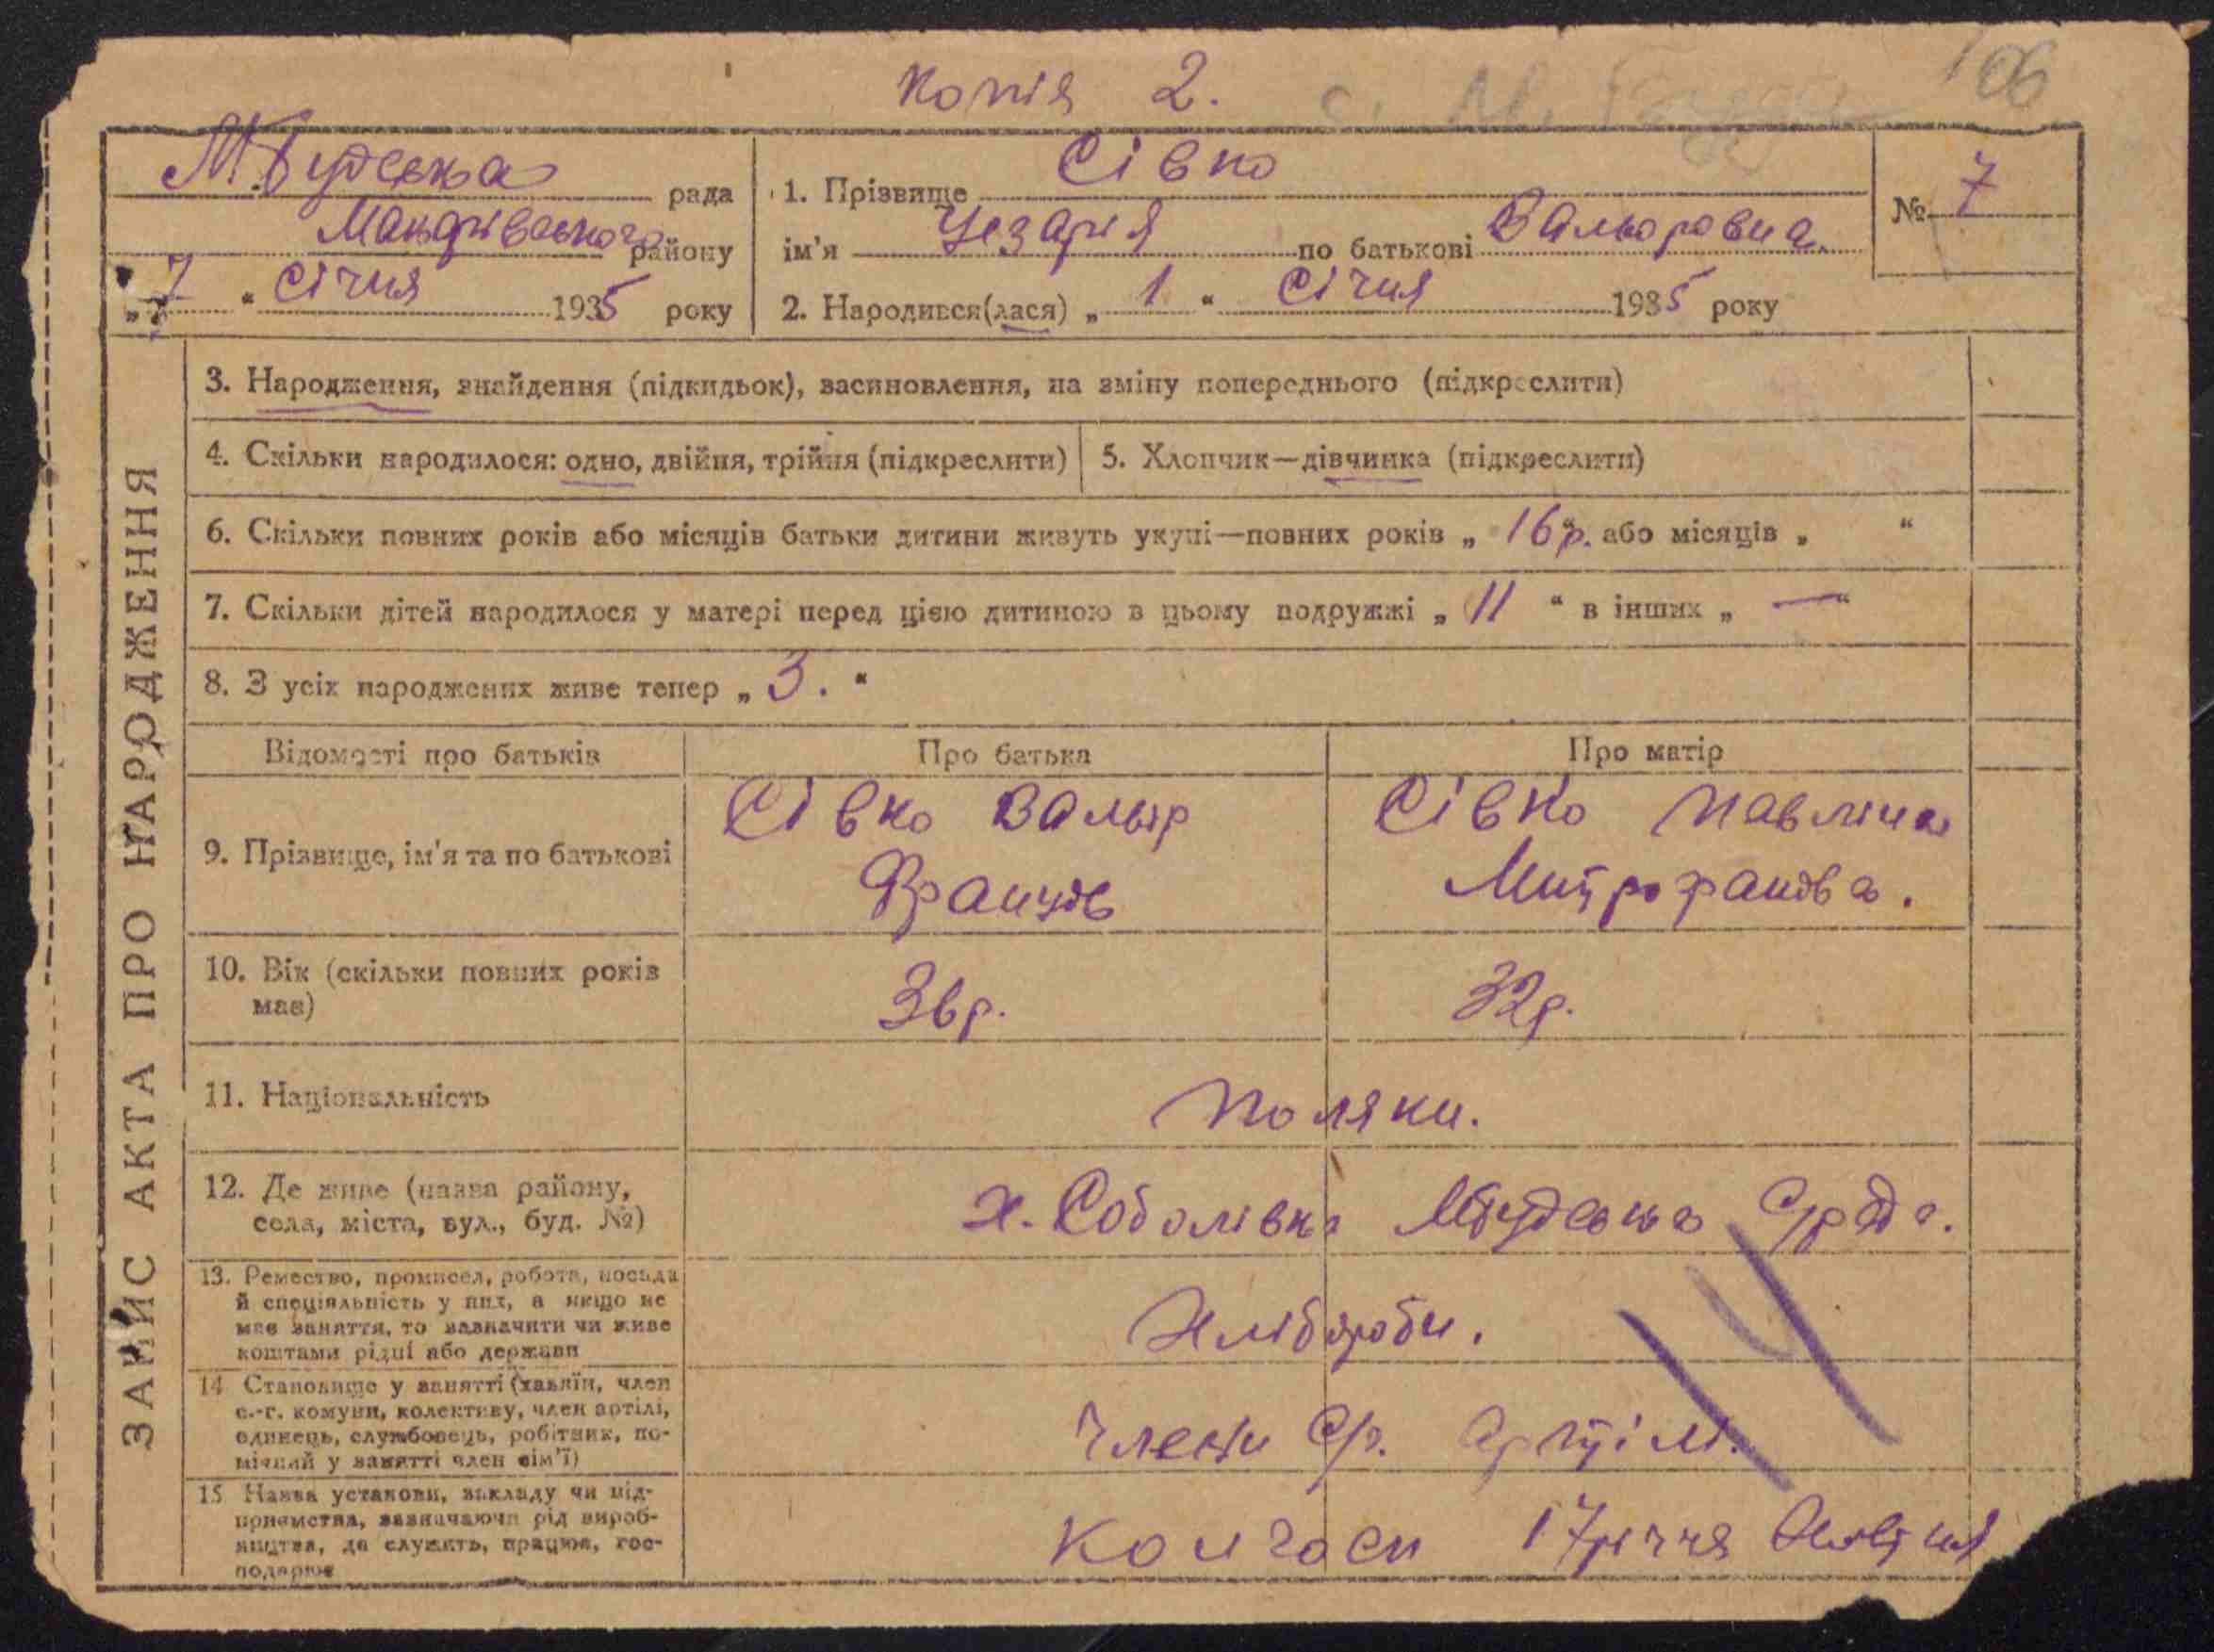 Копія 2.
106
М. Будська рада
Макарівського району
„ 7 “ Січня 1935 року
1. Прізвище Сівко
ім'я Цезарія по батькові Вальоровна
2. Народився(лася) „ 1 “ Січня 1935 року
№ 7
ЗАПИС АКТА ПРО НАРОДЖЕННЯ
3. Народження, знайдення (підкидьок), засиновлення, на зміну попереднього (підкреслити)
4. Скільки народилося: одно, двійня, трійня (підкреслити)
5. Хлопчик—дівчинка (підкреслити)
6. Скільки повних років або місяців батьки дитини живуть укупі—повних років „ 16 р. “ або місяців „ “
7. Скільки дітей народилося у матері перед цією дитиною в цьому подружжі „ 11 “ в інших „ — “
8. З усіх народжених живе тепер „ 3. “
Відомості про батьків
Про батька
Про матір
9. Прізвище, ім'я та по батькові
Сівко Вальір
Францов
Сівко Павліна
Митрофанова.
10. Вік (скільки повних років
має)
36 р.
32 р.
11. Національність
Поляки.
12. Де живе (назва району,
села, міста, вул., буд. №)
х. Соболівка МБудська С/рада.
13. Ремество, промисел, робота, посада
й спеціяльність у них, а якщо не
має заняття, то зазначити чи живе
коштами рідні або держави
Хлібороби.
14 Становище у занятті (хазяїн, член
с.-г. комуни, колективу, член артілі,
одинець, службовець, робітник, по-
мічний у занятті член сім'ї)
Члени С/г. Артілі.
15 Назва установи, закладу чи під-
приємства, зазначаючи рід вироб-
ництва, де служить, працює, гос-
подарює
Колгосп 17 річчя Жовтня